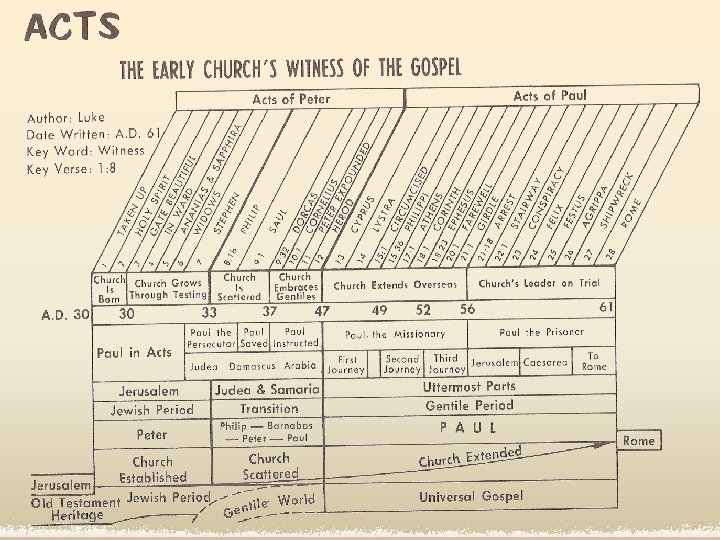 ACTS
THE EARLY CHURCH'S WITNESS OF THE GOSPEL
Acts of Peter
Acts of Paul
Author: Luke
Date Written: A.D. 61
Key Word: Witness
Key Verse: 1:8
TAKEN UP
HOLY SPIRIT
GATE BEAUTIFUL
IN WARD
ANANIAS & SAPPHIRA
WIDOWS
STEPHEN
PHILIP
SAUL
DORCAS
CORNELIUS
PETER EXPOUNDED
HEROD
CYPRUS
LYSTRA
CIRCUMCISED
PHILIPPI
ATHENS
CORINTH
EPHESUS
FAREWELL
GIRDLE
ARREST
STAIRWAY
CONSPIRACY
FELIX
FESTUS
AGRIPPA
SHIPWRECK
ROME
1
2
3
4
5
6
7
8:1b
9:1
9:32
10:1
11
12
13
14
15:1
15:36
17:1
18:1
18:23
20:1
21:1
21:18
22:1
23
24
25
26
27
28
Church
Is
Born
Church Grows
Through Testing
Church
Is
Scattered
Church
Embraces
Gentiles
Church Extends Overseas
Church's Leader on Trial
A.D. 30
30
33
37
47
49
52
56
61
Paul in Acts
Paul the
Persecutor
Paul
Saved
Paul
Instructed
Paul the Missionary
Paul the Prisoner
Judea
Damascus
Arabia
First
Journey
Second
Journey
Third
Journey
Jerusalem
Caesarea
To
Rome
Jerusalem
Judea & Samaria
Uttermost Parts
Jewish Period
Transition
Gentile Period
Peter
Philip — Barnabas
— Peter — Paul
PAUL
Rome
Church
Established
Church
Scattered
Church Extended
Jerusalem
Old Testament
Heritage
Jewish Period
Gentile World
Universal Gospel